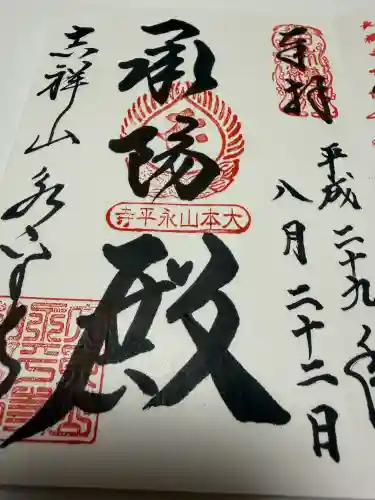 奉拝
平成二十九年
八月二十二日
承陽殿
大本山永平寺
吉祥山永平寺